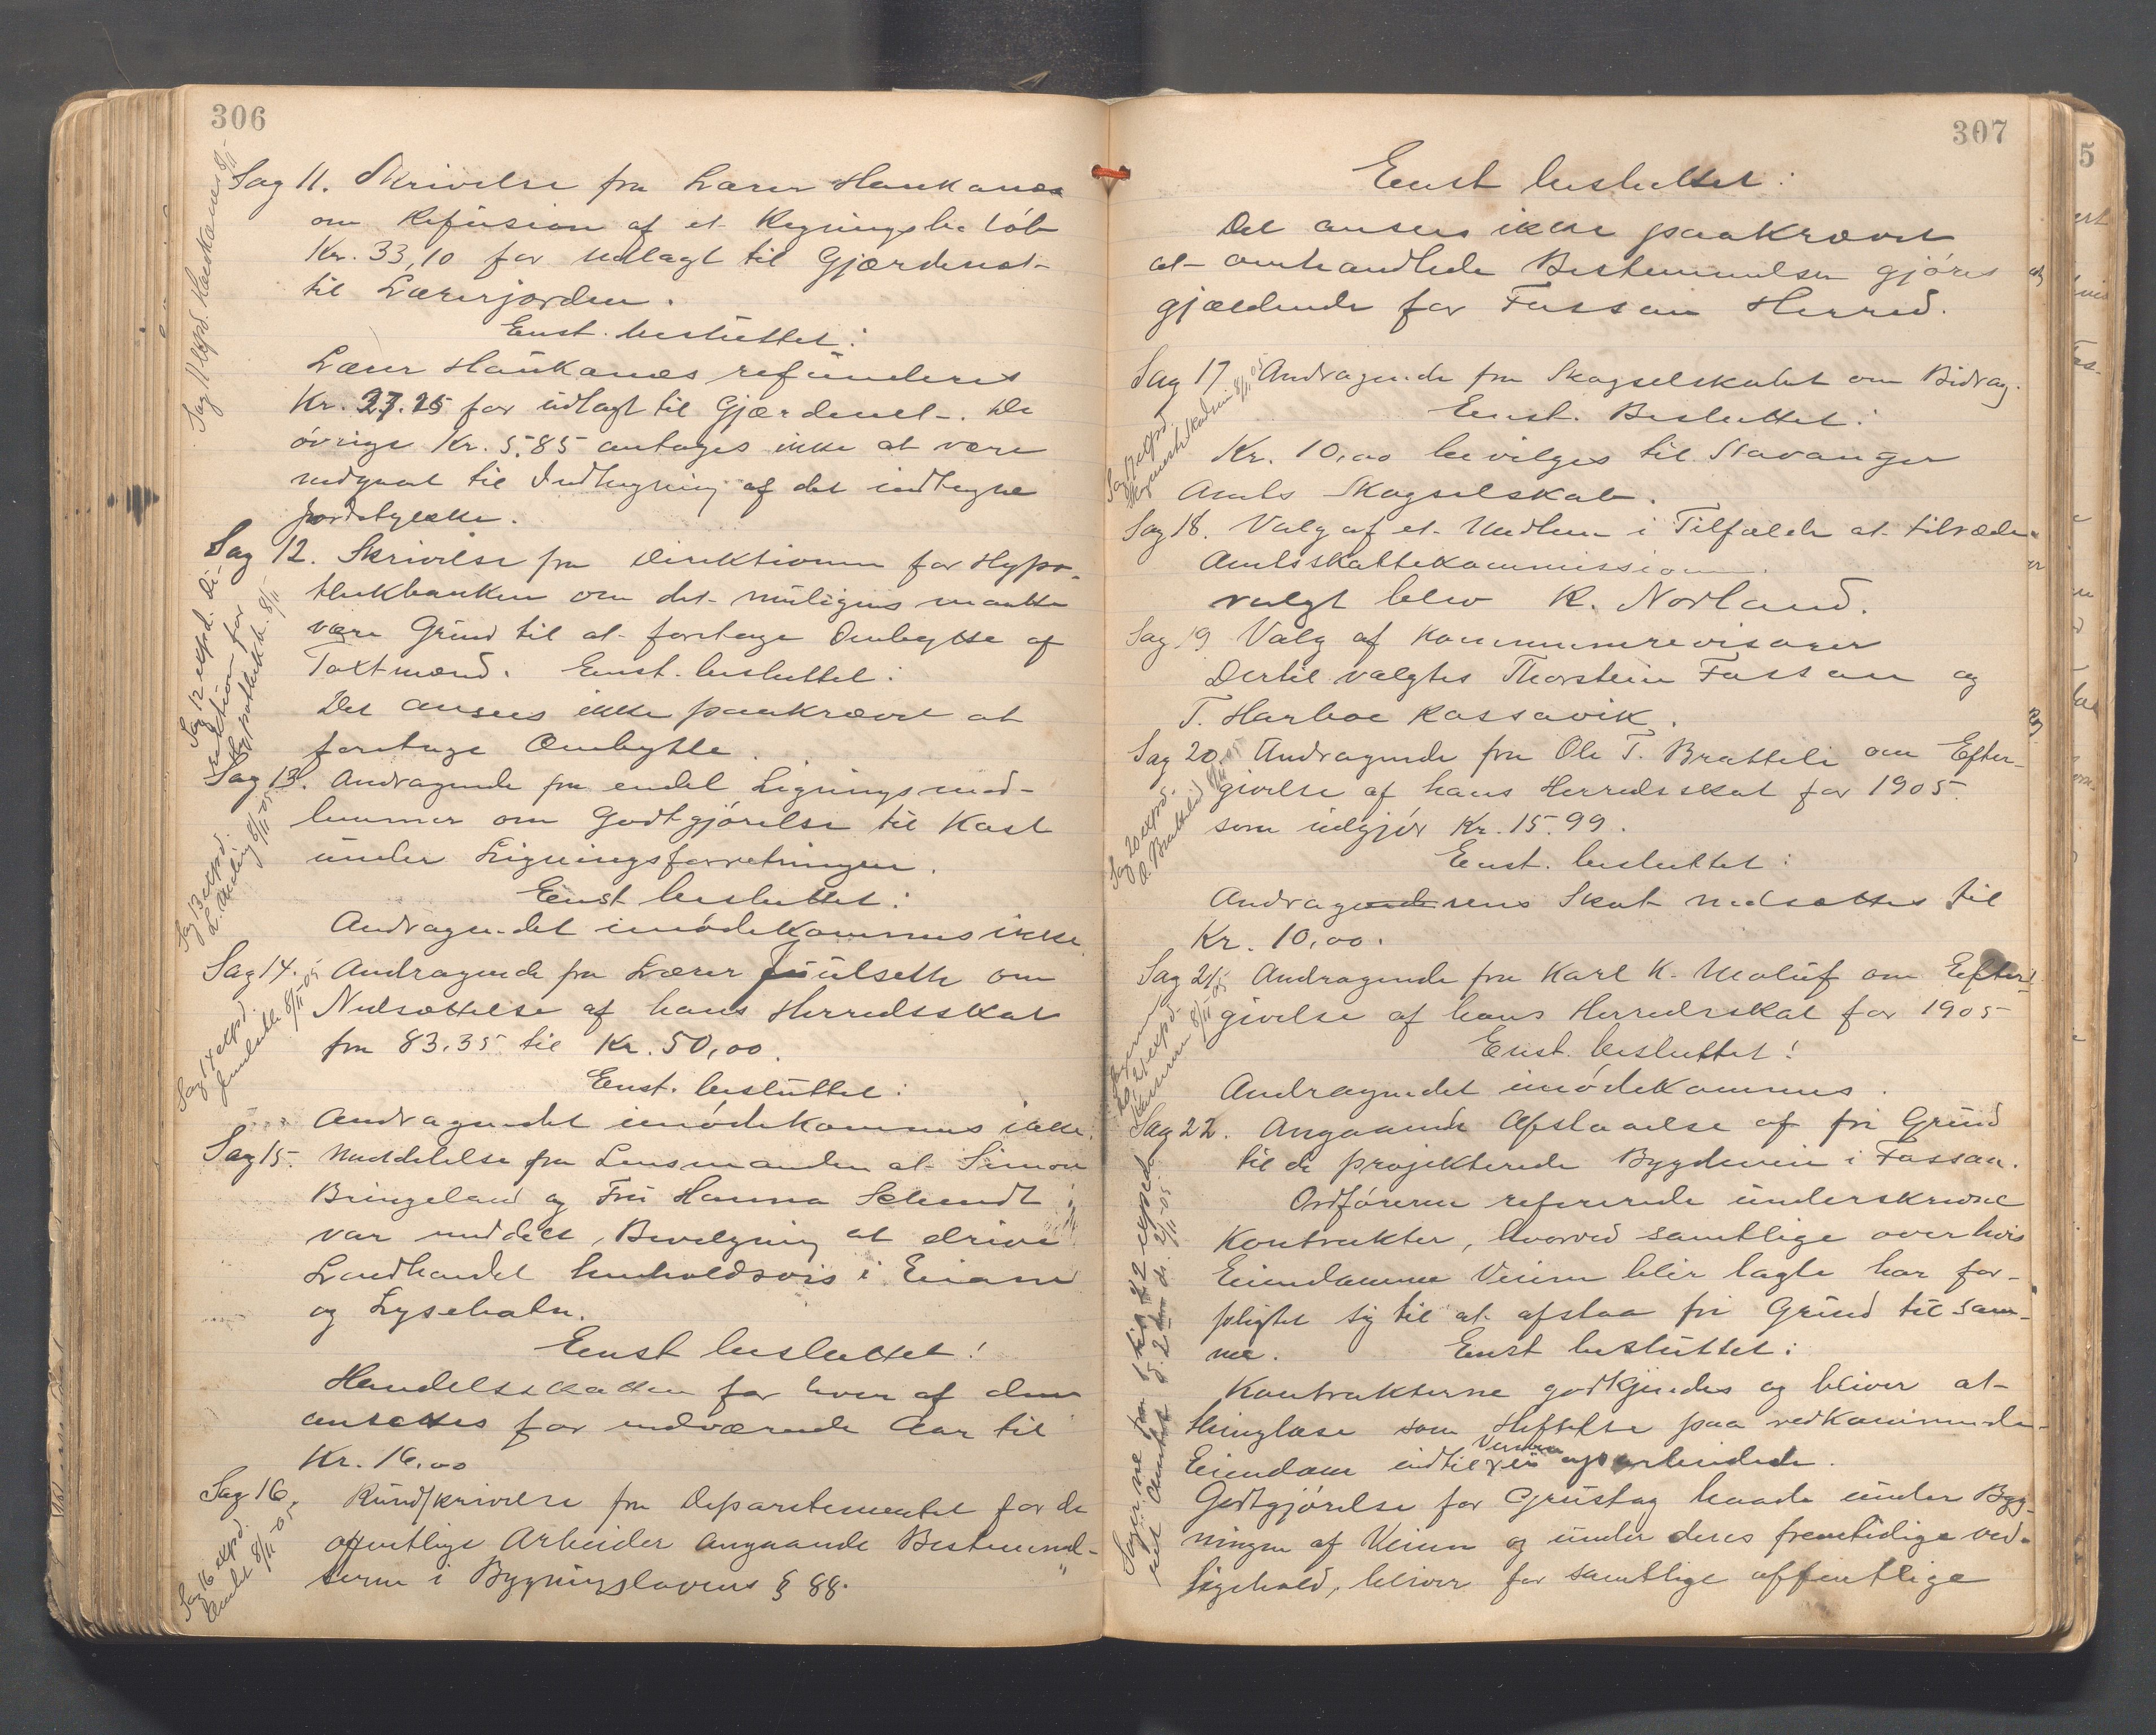 306
Sag 11. Skrivelse fra Lærer Haukanæs
om Refusion af et Regningsbeløb
Kr. 33,10 for udlagt til Gjærdenet
til Lærerjorden.
Enst. besluttet:
Lærer Haukanæs refunderes
Kr. 27.25 for udlagt til Gjærdenet. De
øvrige Kr. 5.85 antages ikke at være
medgaat til Indhegning af det indhegne
Jordstykke.
Sag 12. Skrivelse fra Direktionen for Hypo-
thekbanken om det muligens maatte
være Grund til at foretage Ombytte af
Taxtmænd. Enst. besluttet:
Det ansees ikke paakrævet at
foretage Ombytte.
Sag 13. Andragende fra endel Ligningsmed-
lemmer om Godtgjørelse til Kost
under Ligningsforretningen.
Enst besluttet:
Andragendet imødekommes ikke
Sag 14. Andragende fra Lærer Juulseth om
Nedsættelse af hans Herredsskat
fra 83.35 til Kr. 50,00.
Enst. besluttet:
Andragendet imødekommes ikke.
Sag 15. Meddelelse fra Lensmanden at Simon
Bringeland og Fru Hanna Schmidt
var meddelt Bevilgning at drive
Landhandel henholdsvis i Eiane
og Lysebotn.
Enst besluttet!
Handelsskatten for hver af dem
ansættes for indværende Aar til
Kr. 16.00
Sag 16. Rundskrivelse fra Departementet for de
offentlige Arbeider angaaende Bestemmel-
serne i Bygningslovens § 88.
Sag 11 expd. Haukanæs 8/11
Sag 12 expd. Di-
rektion for
Hypothekb. 8/11
Sag 13 expd.
L. Meling 8/11 05
Sag 14 expd.
Juulseth 8/11-05
Sag 16 expd.
Amtet 8/11-05
307
Enst besluttet:
Det ansees ikke paakrævet
at omhandlede Bestemmelser gjøres
gjældende for Fossan Herred.
Sag 17 Andragende fra Skogselskabet om Bidrag.
Enst. Besluttet:
Kr. 10,00 bevilges til Stavanger
Amts Skogselskab.
Sag 18. Valg af et Medlem i Tilfælde at tiltræde
Amtsskattekommissionen.
valgt blev K. Norland.
Sag 19 Valg af Kommunerevisorer
Dertil valgtes Thorstein Fossan og
T. Harboe Rossavik.
Sag 20. Andragende fra Ole T. Bratteli om Efter-
givelse af hans Herredsskat for 1905
som udgjør Kr. 15.99.
Enst. besluttet:
Andragerens Skat nedsættes til
Kr. 10,00.
Sag 21. Andragende fra Karl K. Moluf om Efter-
givelse af hans Herredsskat for 1905
Enst. besluttet!
Andragendet imødekommes.
Sag 22. Angaaende Afstaaelse af fri Grund
til de projekterede Bygdeveie i Fossan.
Ordføreren refererede underskrevne
Kontrakter, hvorved samtlige over hvis
Eiendomme Veien blir lagte har for-
pligtet sig til at afstaa fri Grund til sam-
me. Enst besluttet:
Kontrakterne godkjendes og bliver at
thinglæse som Heftelse paa vedkommende
Eiendom indtil Veien opparbeidede.
Godtgjørelse for Grustag baade under Byg-
ningen af Veien og under deres fremtidige ved-
ligehold, bliver for samtlige offentlige
Sag 17 expd.
8/11 05
Sag 20 expd.
O. Brattelid 8/11 05
Sag 21 expd.
8/11 05
Sagerne fra 1 til 22 exped.